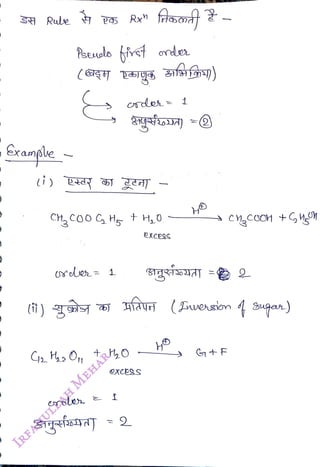 इस Rule से एक Rxⁿ निकलती है -
Pseudo first order
(छद्म एकाणुक अभिक्रिया)
order = 1
अणुसंख्यता = 2
Example -
(i) एस्टर का टूटना -
CH₃COOC₂H₅ + H₂O —H⊕→ CH₃COOH + C₂H₅OH
excess
order = 1 अणुसंख्यता = 2
(ii) सुक्रोज का प्रतिपन (Inversion of sugar)
C₁₂H₂₂O₁₁ + H₂O —H⊕→ G+F
excess
order = 1
अणुसंख्यता = 2
IRFANULLAH MEHAR